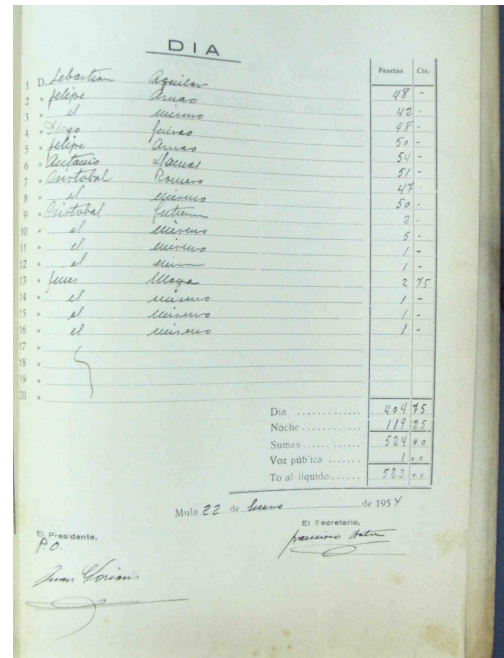 DIA
Pesetas Cts.
1 D. Sebastian Aguilar 48 -
2 » felipe Arnao 42 -
3 » el mismo 48 -
4 » Diego 50 -
5 » felipe Arnao 54 -
6 » Antonio Llamas 51 -
7 » Cristobal Romero 47 -
8 » el mismo 50 -
9 » Cristobal Gutierrez 2 -
10 » el mismo 5 -
11 » el mismo 1 -
12 » el 1 -
13 » Moya 2 75
14 » el mismo 1 -
15 » el mismo 1 -
16 » el mismo 1 -
17 »
18 »
19 »
20 »
Dia ............ 404 75
Noche ........... 119 25
Sumas ...... 524 00
Voz pública ....... 1 00
To al liquido ...... 523 00
Mula 22 de Enero de 1954
El Presidente, El Secretario,
P.O.
Juan Soriano